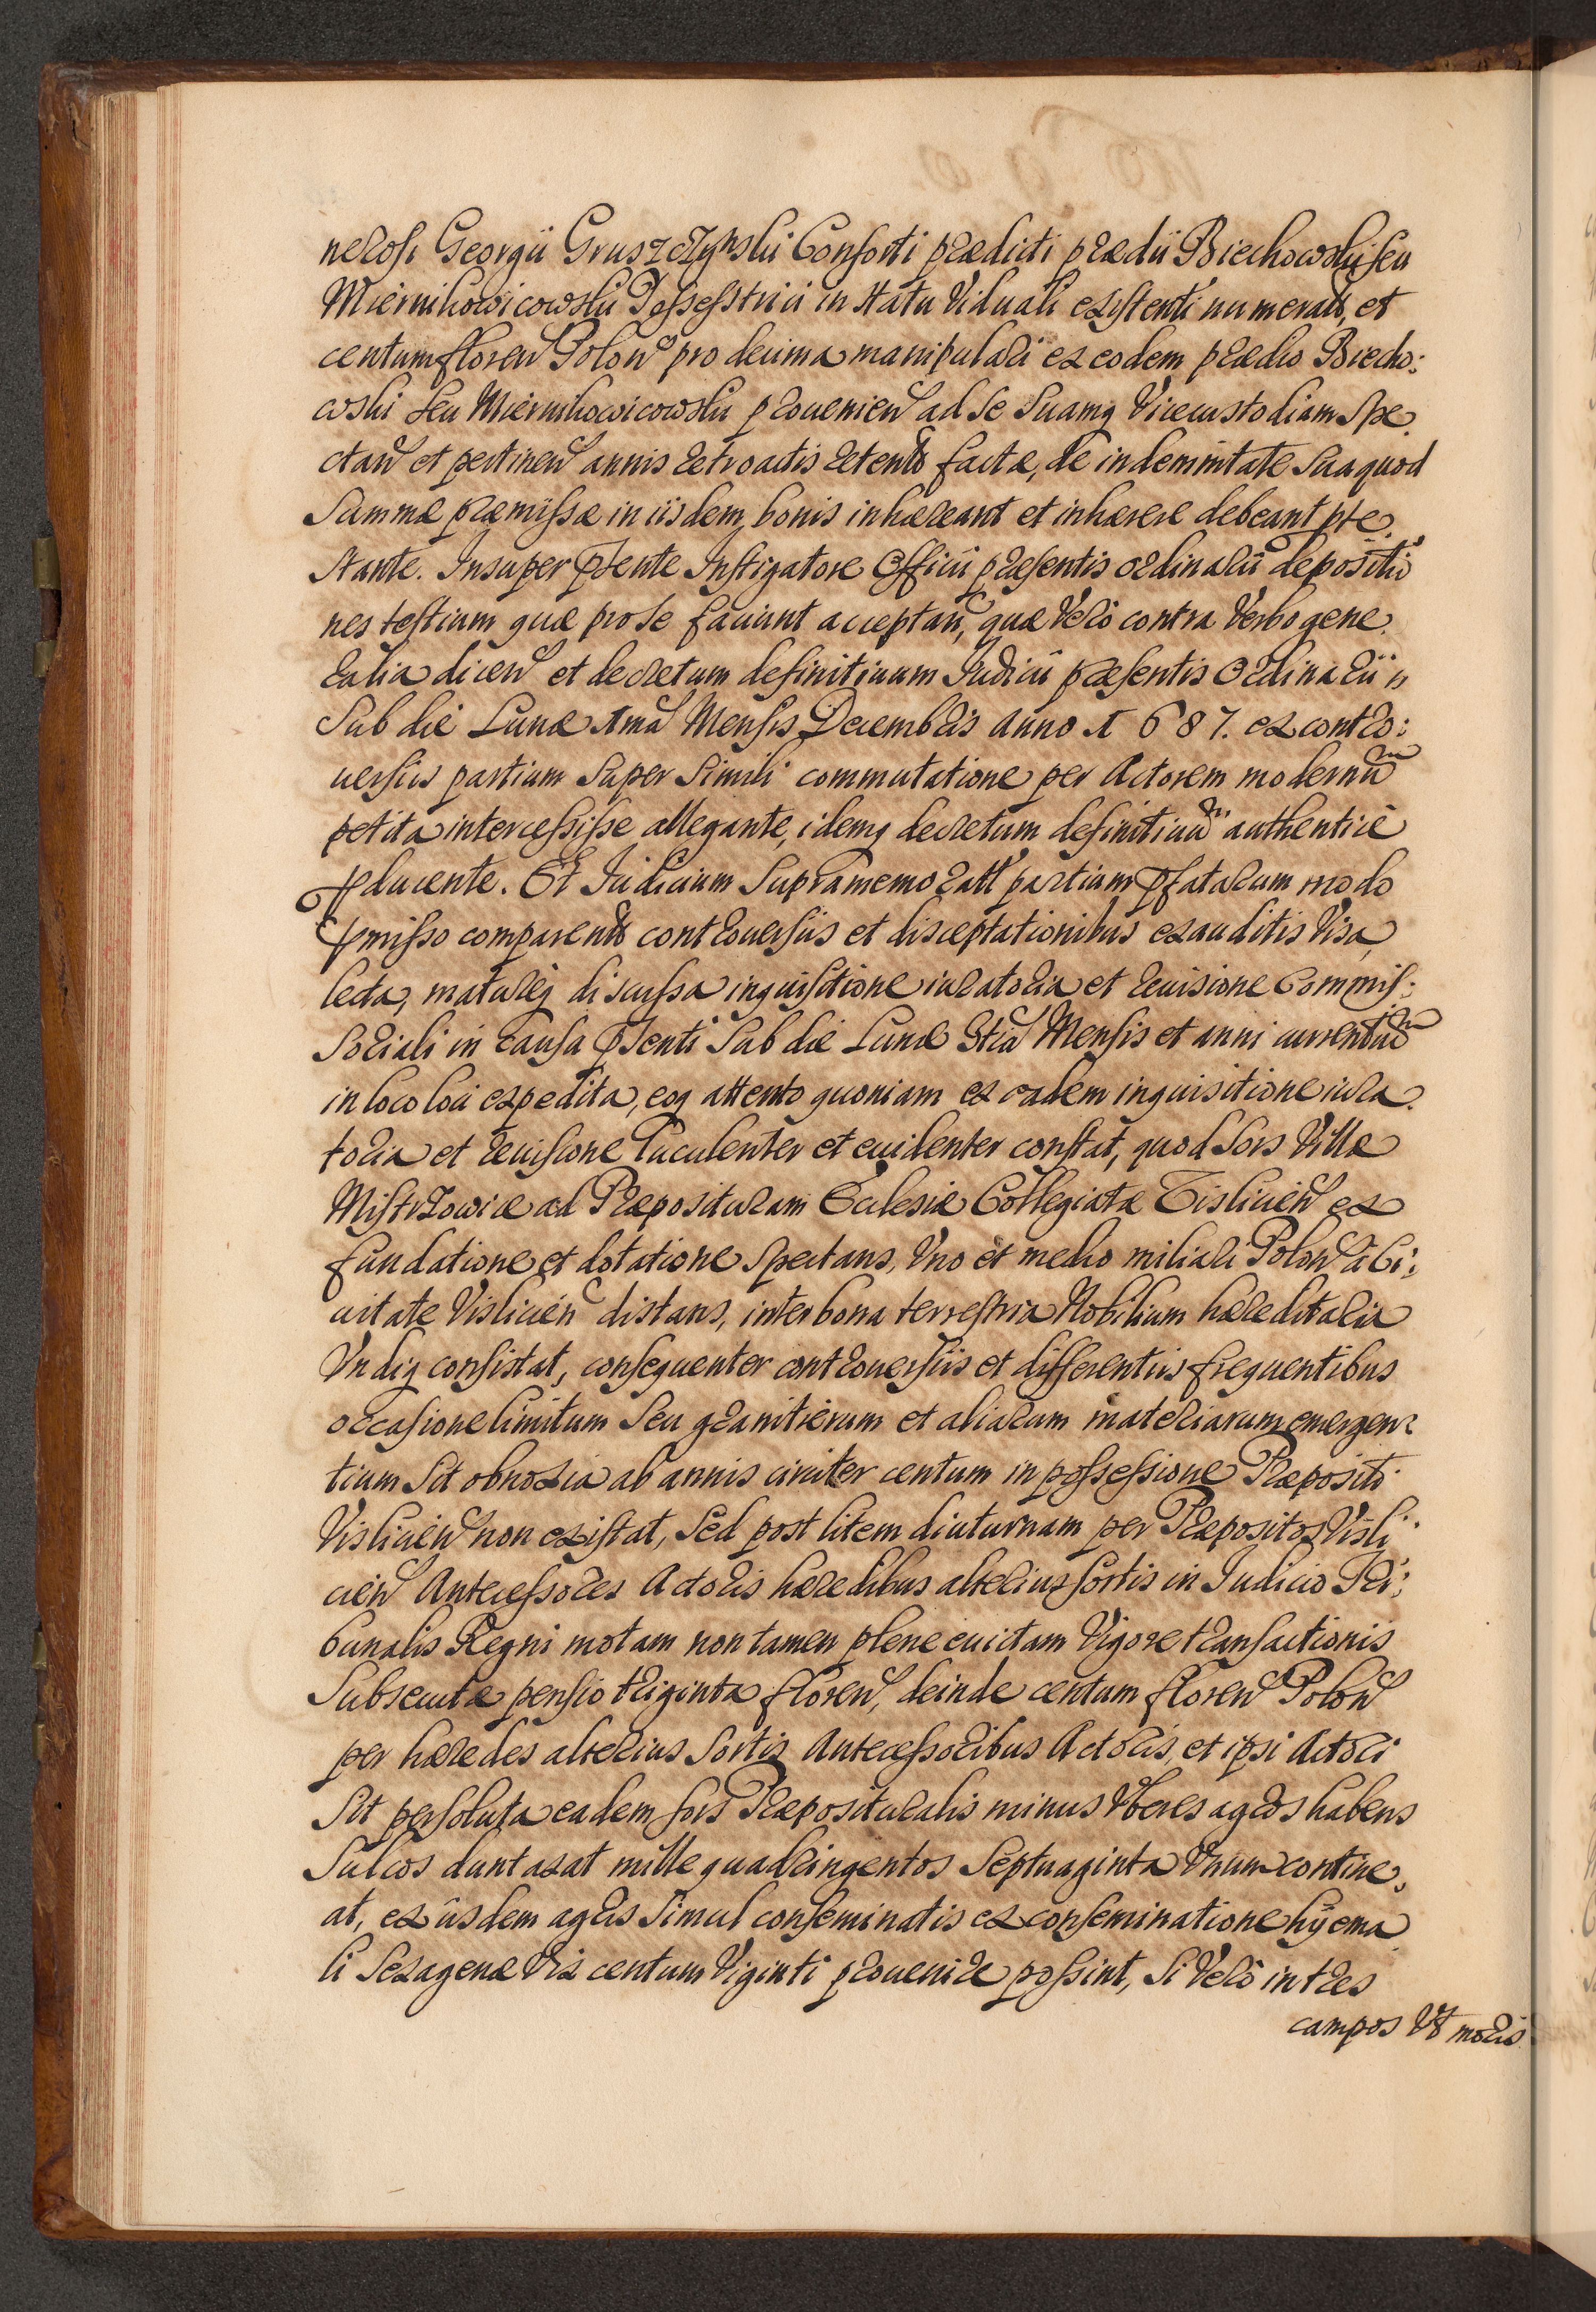 nerosi Georgii Gruszczynski Consorti prædicti prædii Biechowski seu
Miernikowicowski Possessatrici in statu Viduali existenti numeratt, et
centum floren Polon pro decima manipulari ex eodem prædio Biecho:
wski seu Miernikowicowski prouenien ad se suamq Vicecustodiam spe
ctan et pertinen annis retroactis retent factæ, de indemnitate sua quod
summæ præmissæ in iisdem bonis inhæreant et inhærere debeant pte
stante. Insuper Pñte Instigatore Officii præsentis ordinarii depositio
nes testium quæ pro se faciunt acceptan, quæ Vero contra Verbo gene
ralia dicen et decretum definitiuum Iudicii præsentis Ordinarii
sub die Lunæ 1ma Mensis Decembris anno 1687. ex contro:
uersiis partium super simili commutatione per Actorem modernũ
petita intercessisse allegante, idemq decretum definitiuũ authentice
pducente. Et Iudicium supramemoratt partium Pfatarum modo
Pmisso comparent controuersiis et disceptationibus exauditis Visa,
lecta, matureq discussa inquisitione iuratoria et reuisione Commis:
soriali in causa Psenti sub die Lunæ 3tia Mensis et anni currentiũ
in loco loci expedita, eoq attento quoniam ex eadem inquisitione iura
toria et reuisione luculenter et euidenter constat, quod sors Villæ
Mistrzowice ad Præposituram Ecclesiæ Collegiatæ Vislicien ex
fundatione et dotatione spectans, Vno et medio miliari Polon a Ci:
uitate Vislicien distans, inter bona terrestria Nobilium hæreditaria
Vndiq consistat, consequenter controuersiis et differentiis frequentibus
occasione limitum seu granitierum et aliarum materiarum emergen
tium sit obnoxia ab annis circiter centum in possessione Præpositi
Vislicien non existat, sed post litem diuturnam per Præpositos Visli
cien Antecessores Actoris hæredibus alterius sortis in Iudicio Tri:
bunalis Regni motam non tamen plene euictam Vigore transactionis
subsecutæ pensio triginta floren, deinde centum floren Polon
per hæredes alterius sortis Antecessoribus Actoris, et ipsi Actori
sit persoluta eadem sors Præposituralis minus Vberes agros habens
sulcos duntaxat mille quadringentos septuaginta Vnum contine
at, ex iisdem agris simul conseminatis ex conseminatione hyema
li sexagenæ Vix centum Viginti prouenire possint, si Vero in tres
campos Vt moris